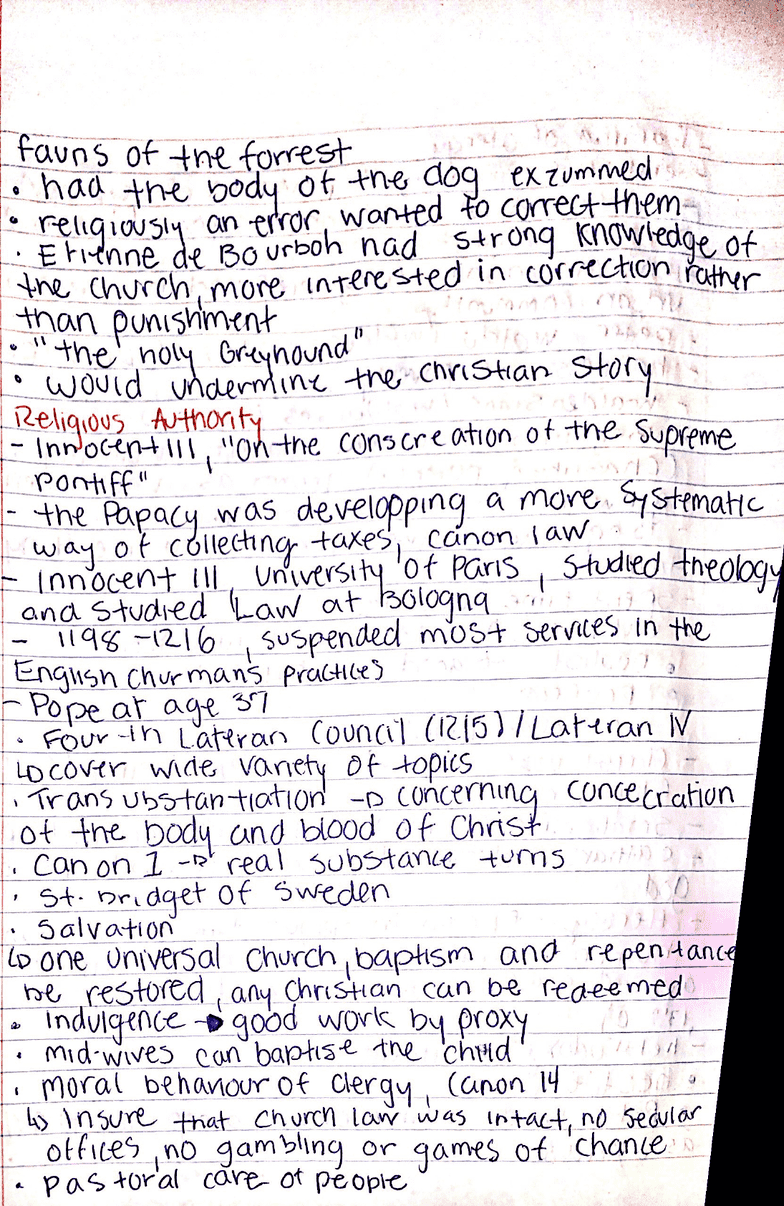 fauns of the forrest
• had the body of the dog exzummed
• religiously an error wanted to correct them
• Etienne de Bourboh had strong knowledge of
the church, more interested in correction rather
than punishment
• "the holy Greyhound"
• would undermine the christian story
Religious Authority
- Innocent III, "on the conscreation of the Supreme
Pontiff"
- the Papacy was developping a more systematic
way of collecting taxes, canon law
- Innocent III, University of Paris, studied theology
and studied Law at Bologna
- 1198-1216, suspended most services in the
English churman's practices
- Pope at age 37
• Four-th Lateran Council (1215) / Lateran IV
↳ cover wide variety of topics
• Transubstantiation → concerning concecration
of the body and blood of Christ
• Canon 1 → real substance turns
• St. Bridget of Sweden
• Salvation
↳ one universal church, baptism and repentance
be restored, any Christian can be redeemed
• Indulgence → good work by proxy
• mid-wives can baptise the child
• moral behaviour of clergy, Canon 14
↳ Insure that church law was intact, no secular
offices, no gambling or games of chance
• pastoral care of people